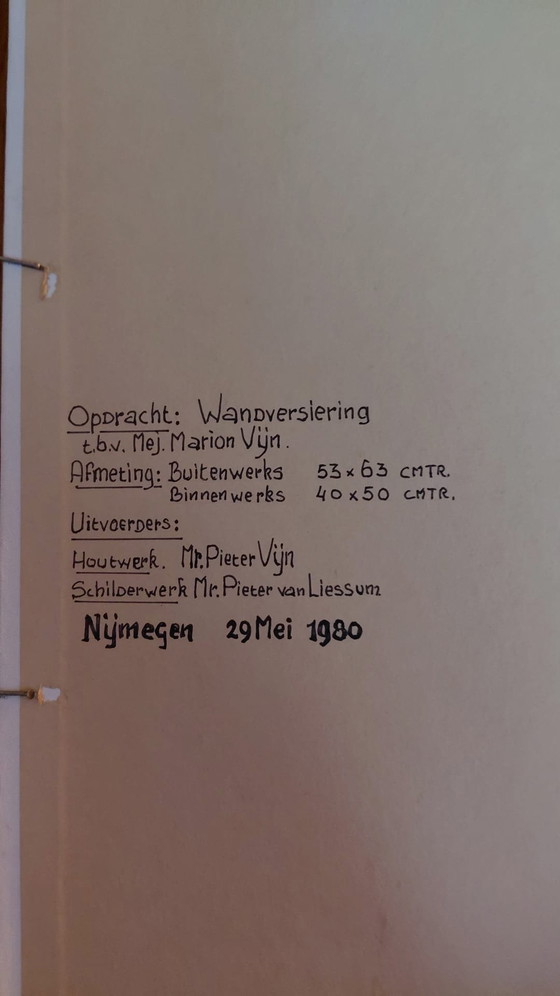 Opdracht: Wandversiering
t.b.v. Mej. Marion Vijn.
Afmeting: Buitenwerks 53 x 63 CMTR.
Binnenwerks 40 x 50 CMTR.
Uitvoerders:
Houtwerk. Mr. Pieter Vijn
Schilderwerk Mr. Pieter van Liessum
Nijmegen 29 Mei 1980